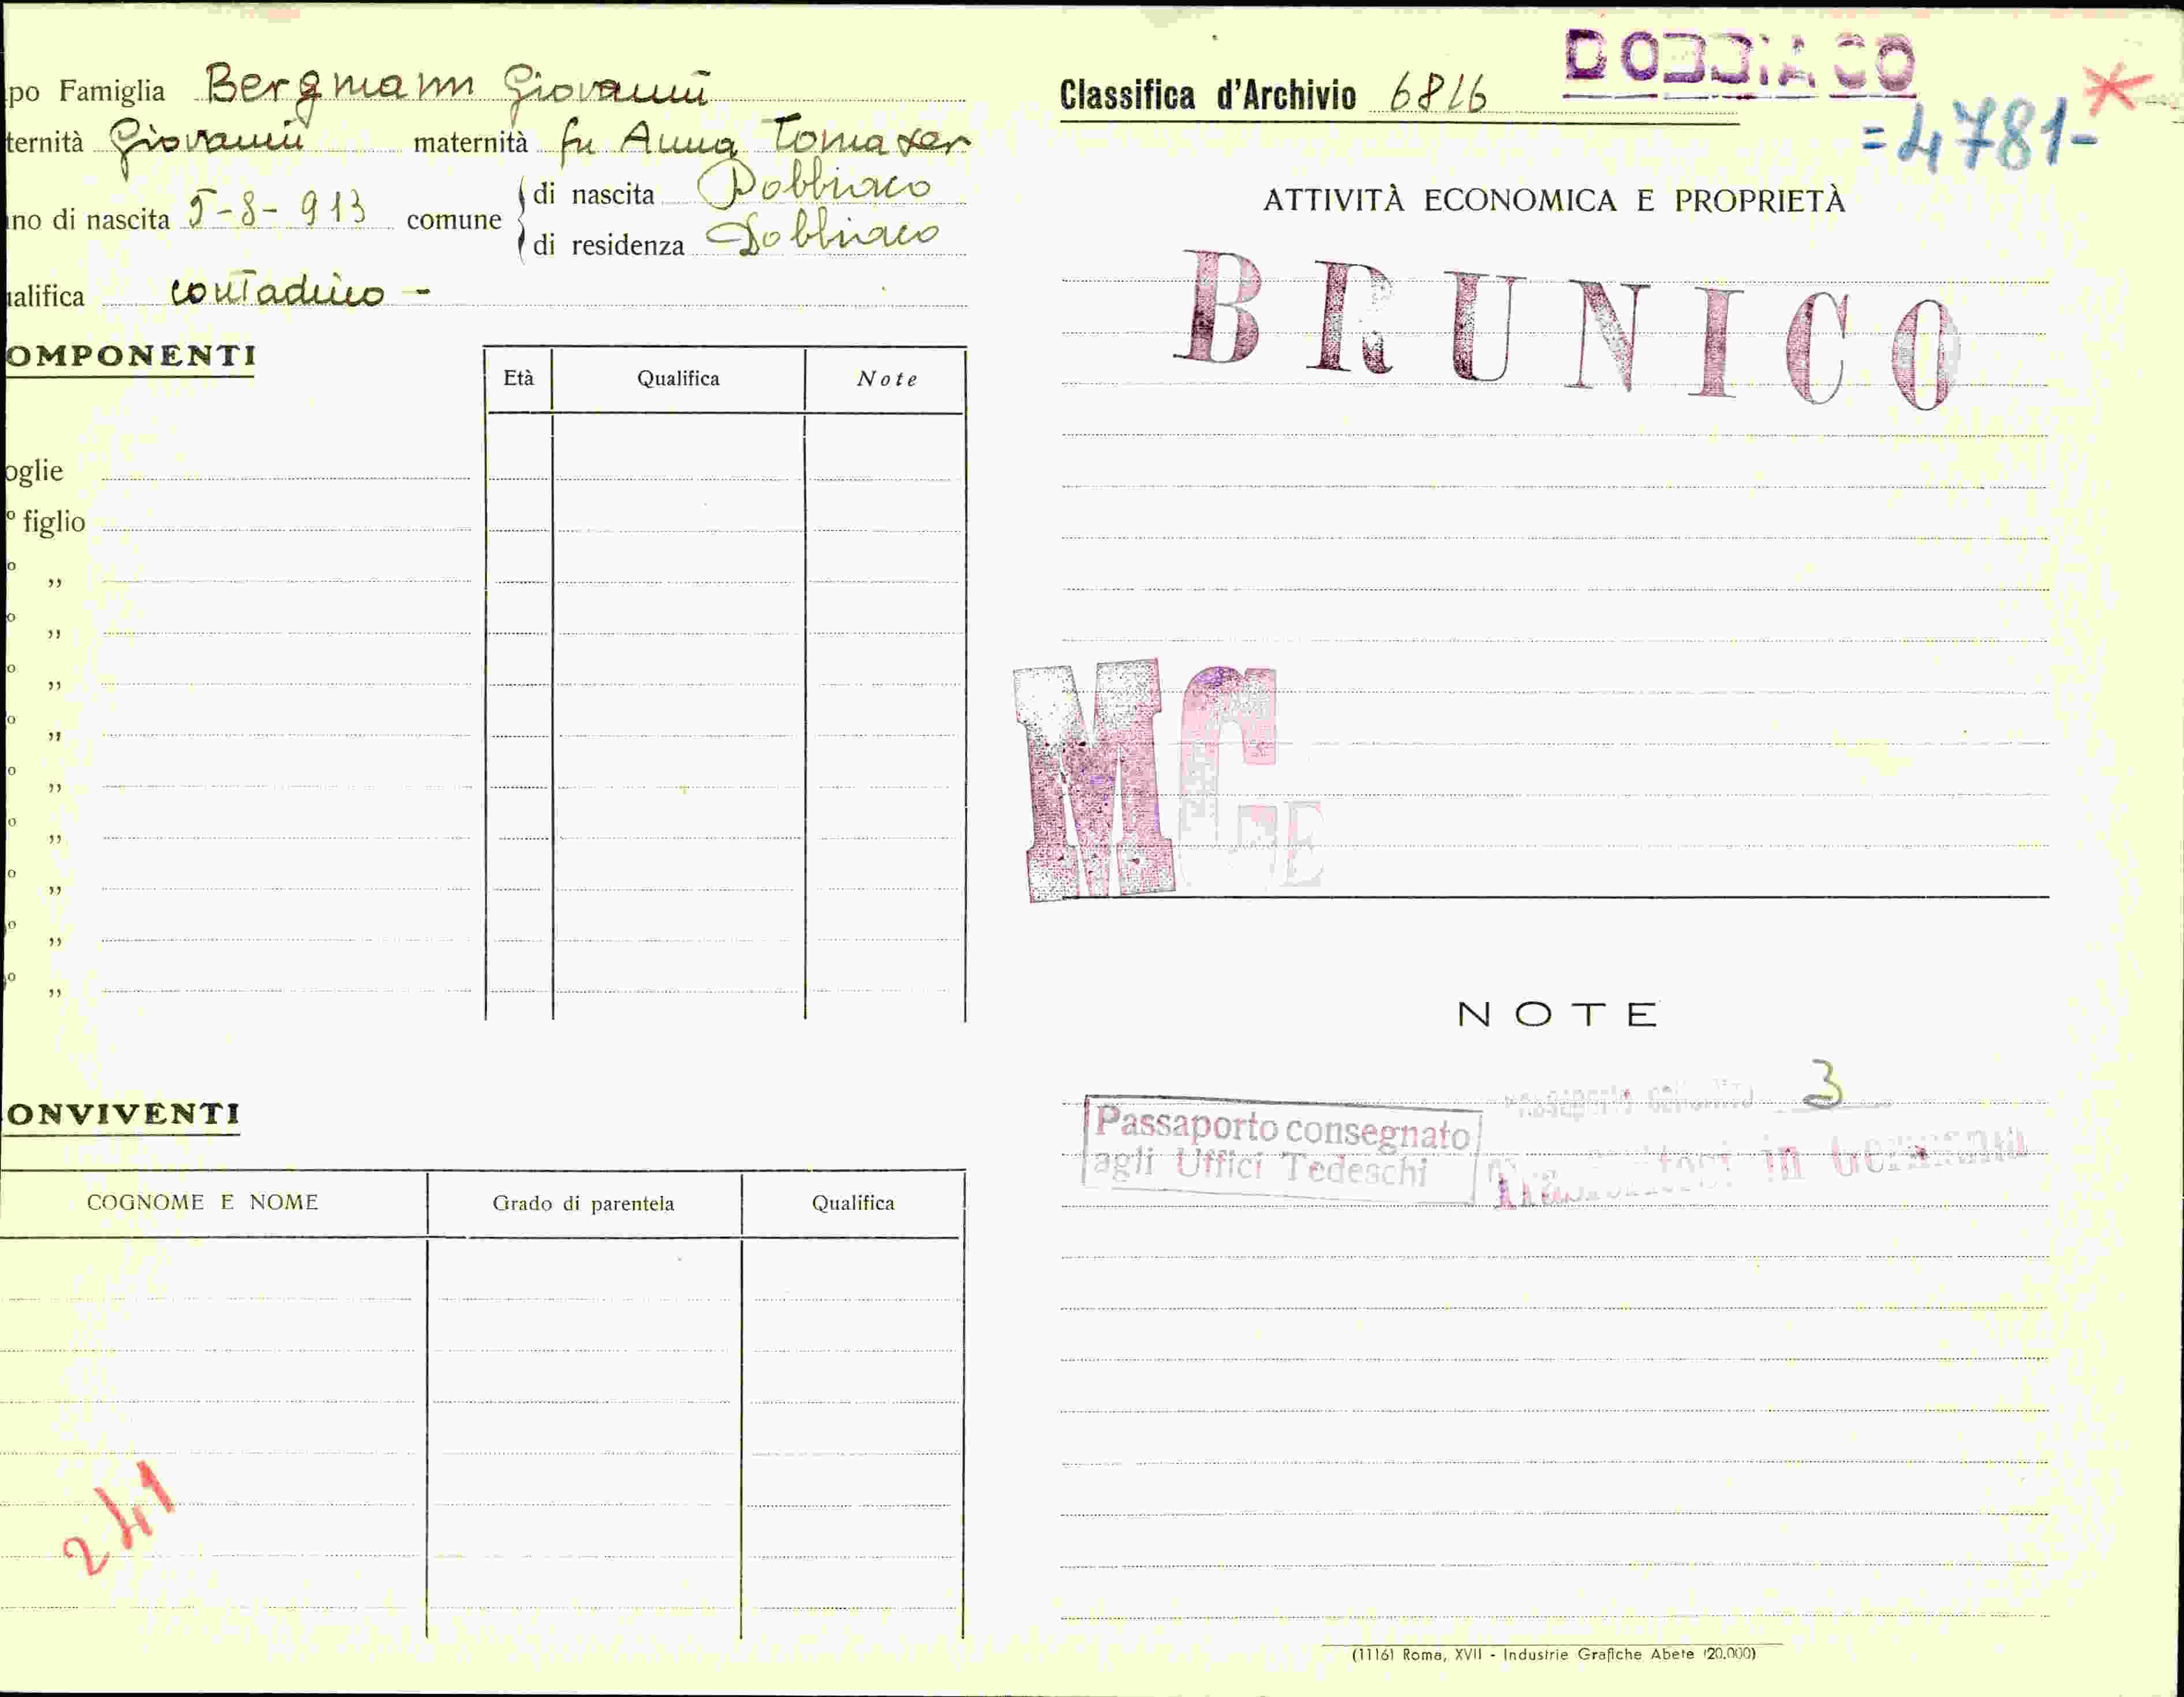 po Famiglia Bergmann Giovanni
ternità Giovanni maternità fu Anna Tomaser
no di nascita 5-8-913 comune di nascita Dobbiaco
di residenza Dobbiaco
alifica contadino -
OMPONENTI
Età Qualifica Note
oglie
º figlio
º „
º „
º „
º „
º „
º „
º „
º „
º „
ONVIVENTI
COGNOME E NOME Grado di parentela Qualifica
241
Classifica d'Archivio 6816
DOBBIACO
=4781-
ATTIVITÀ ECONOMICA E PROPRIETÀ
BRUNICO
MC
E
NOTE
3
Passaporto consegnato
agli Uffici Tedeschi
in Germania
(1116) Roma, XVII - Industrie Grafiche Abete (20.000)